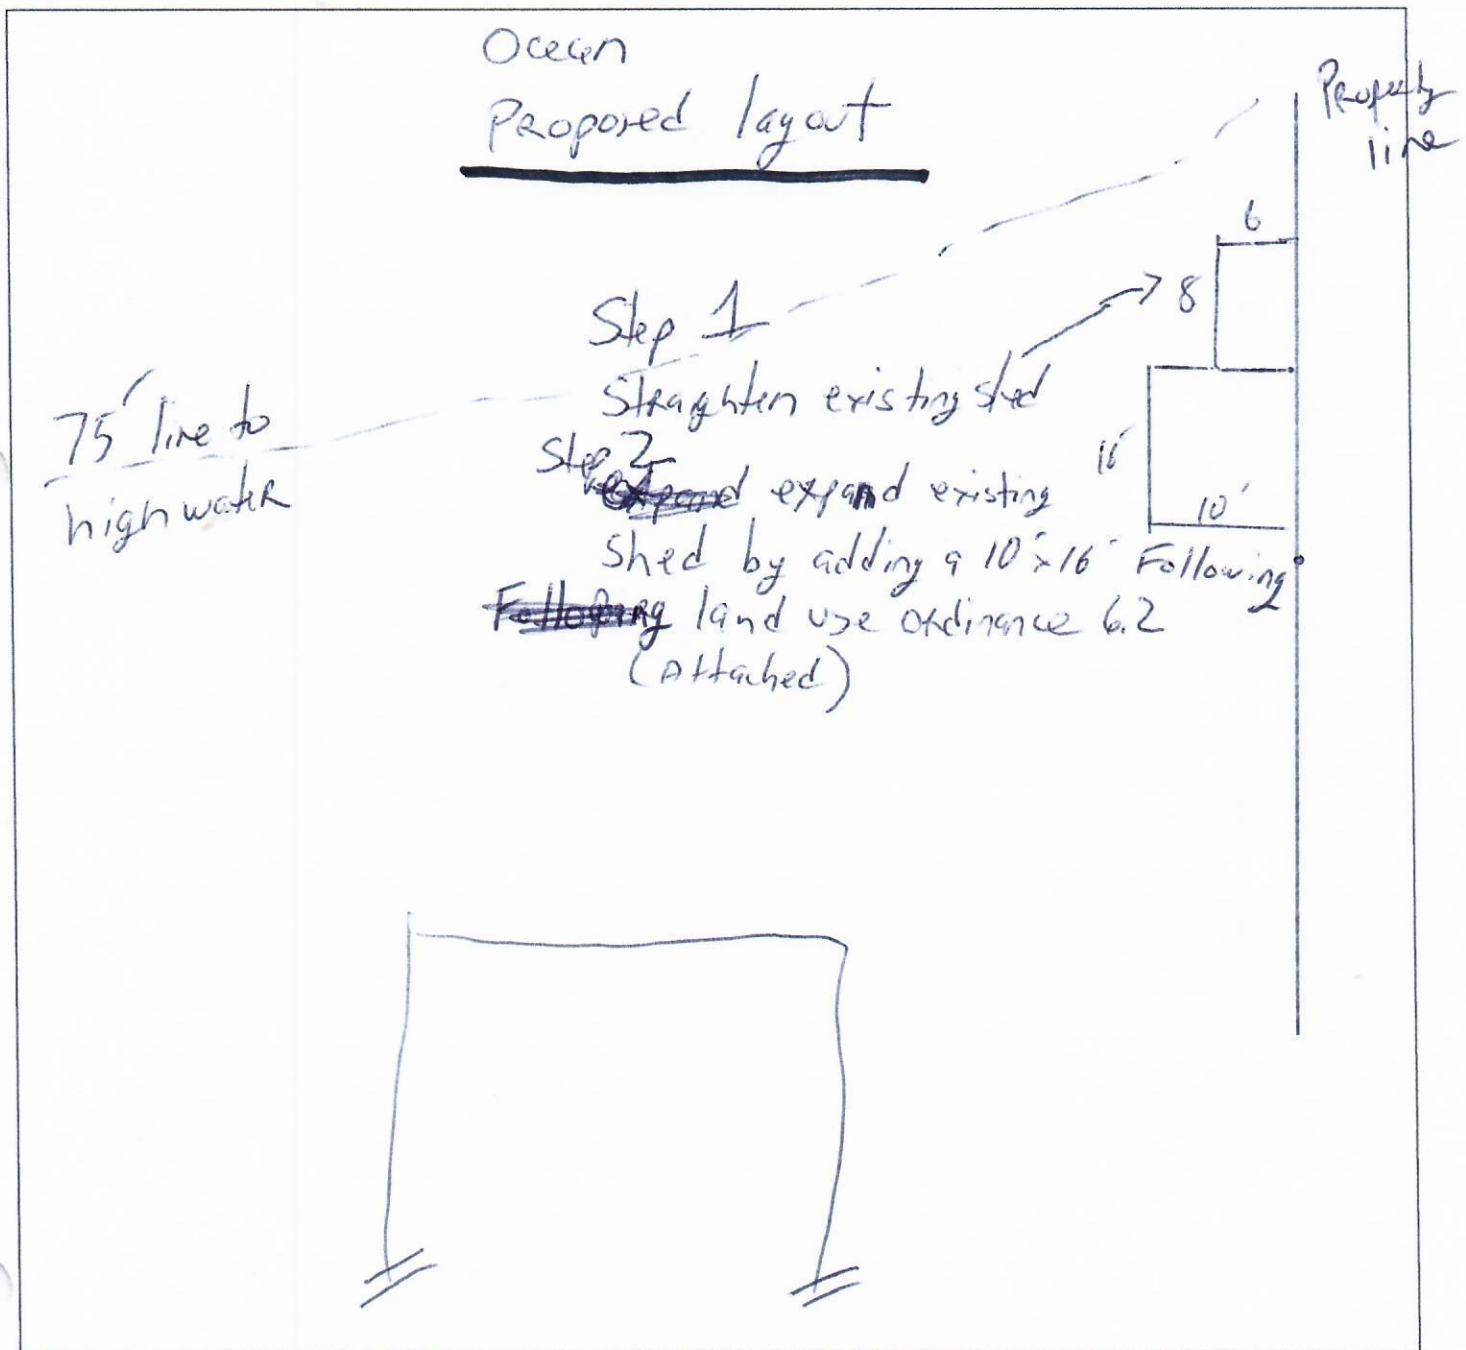 Ocean
Proposed layout
Property
line
6
8
Step 1
Straighten existing shed
75' line to
high water
Step 2
expand expand existing
16'
10'
shed by adding a 10' x 16' Following
Following land use ordinance 6.2
(Attached)